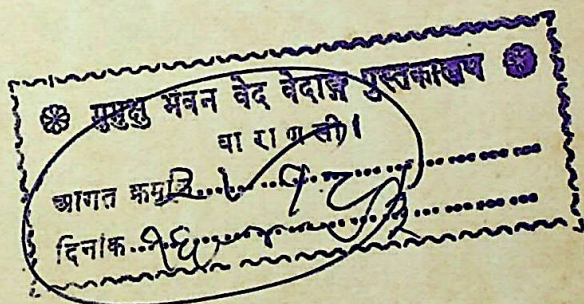 ❀ मुमुक्षु भवन वेद वेदाङ्ग पुस्तकालय ❀
वा रा ण सी।
आगत क्रमांक
दिनांक